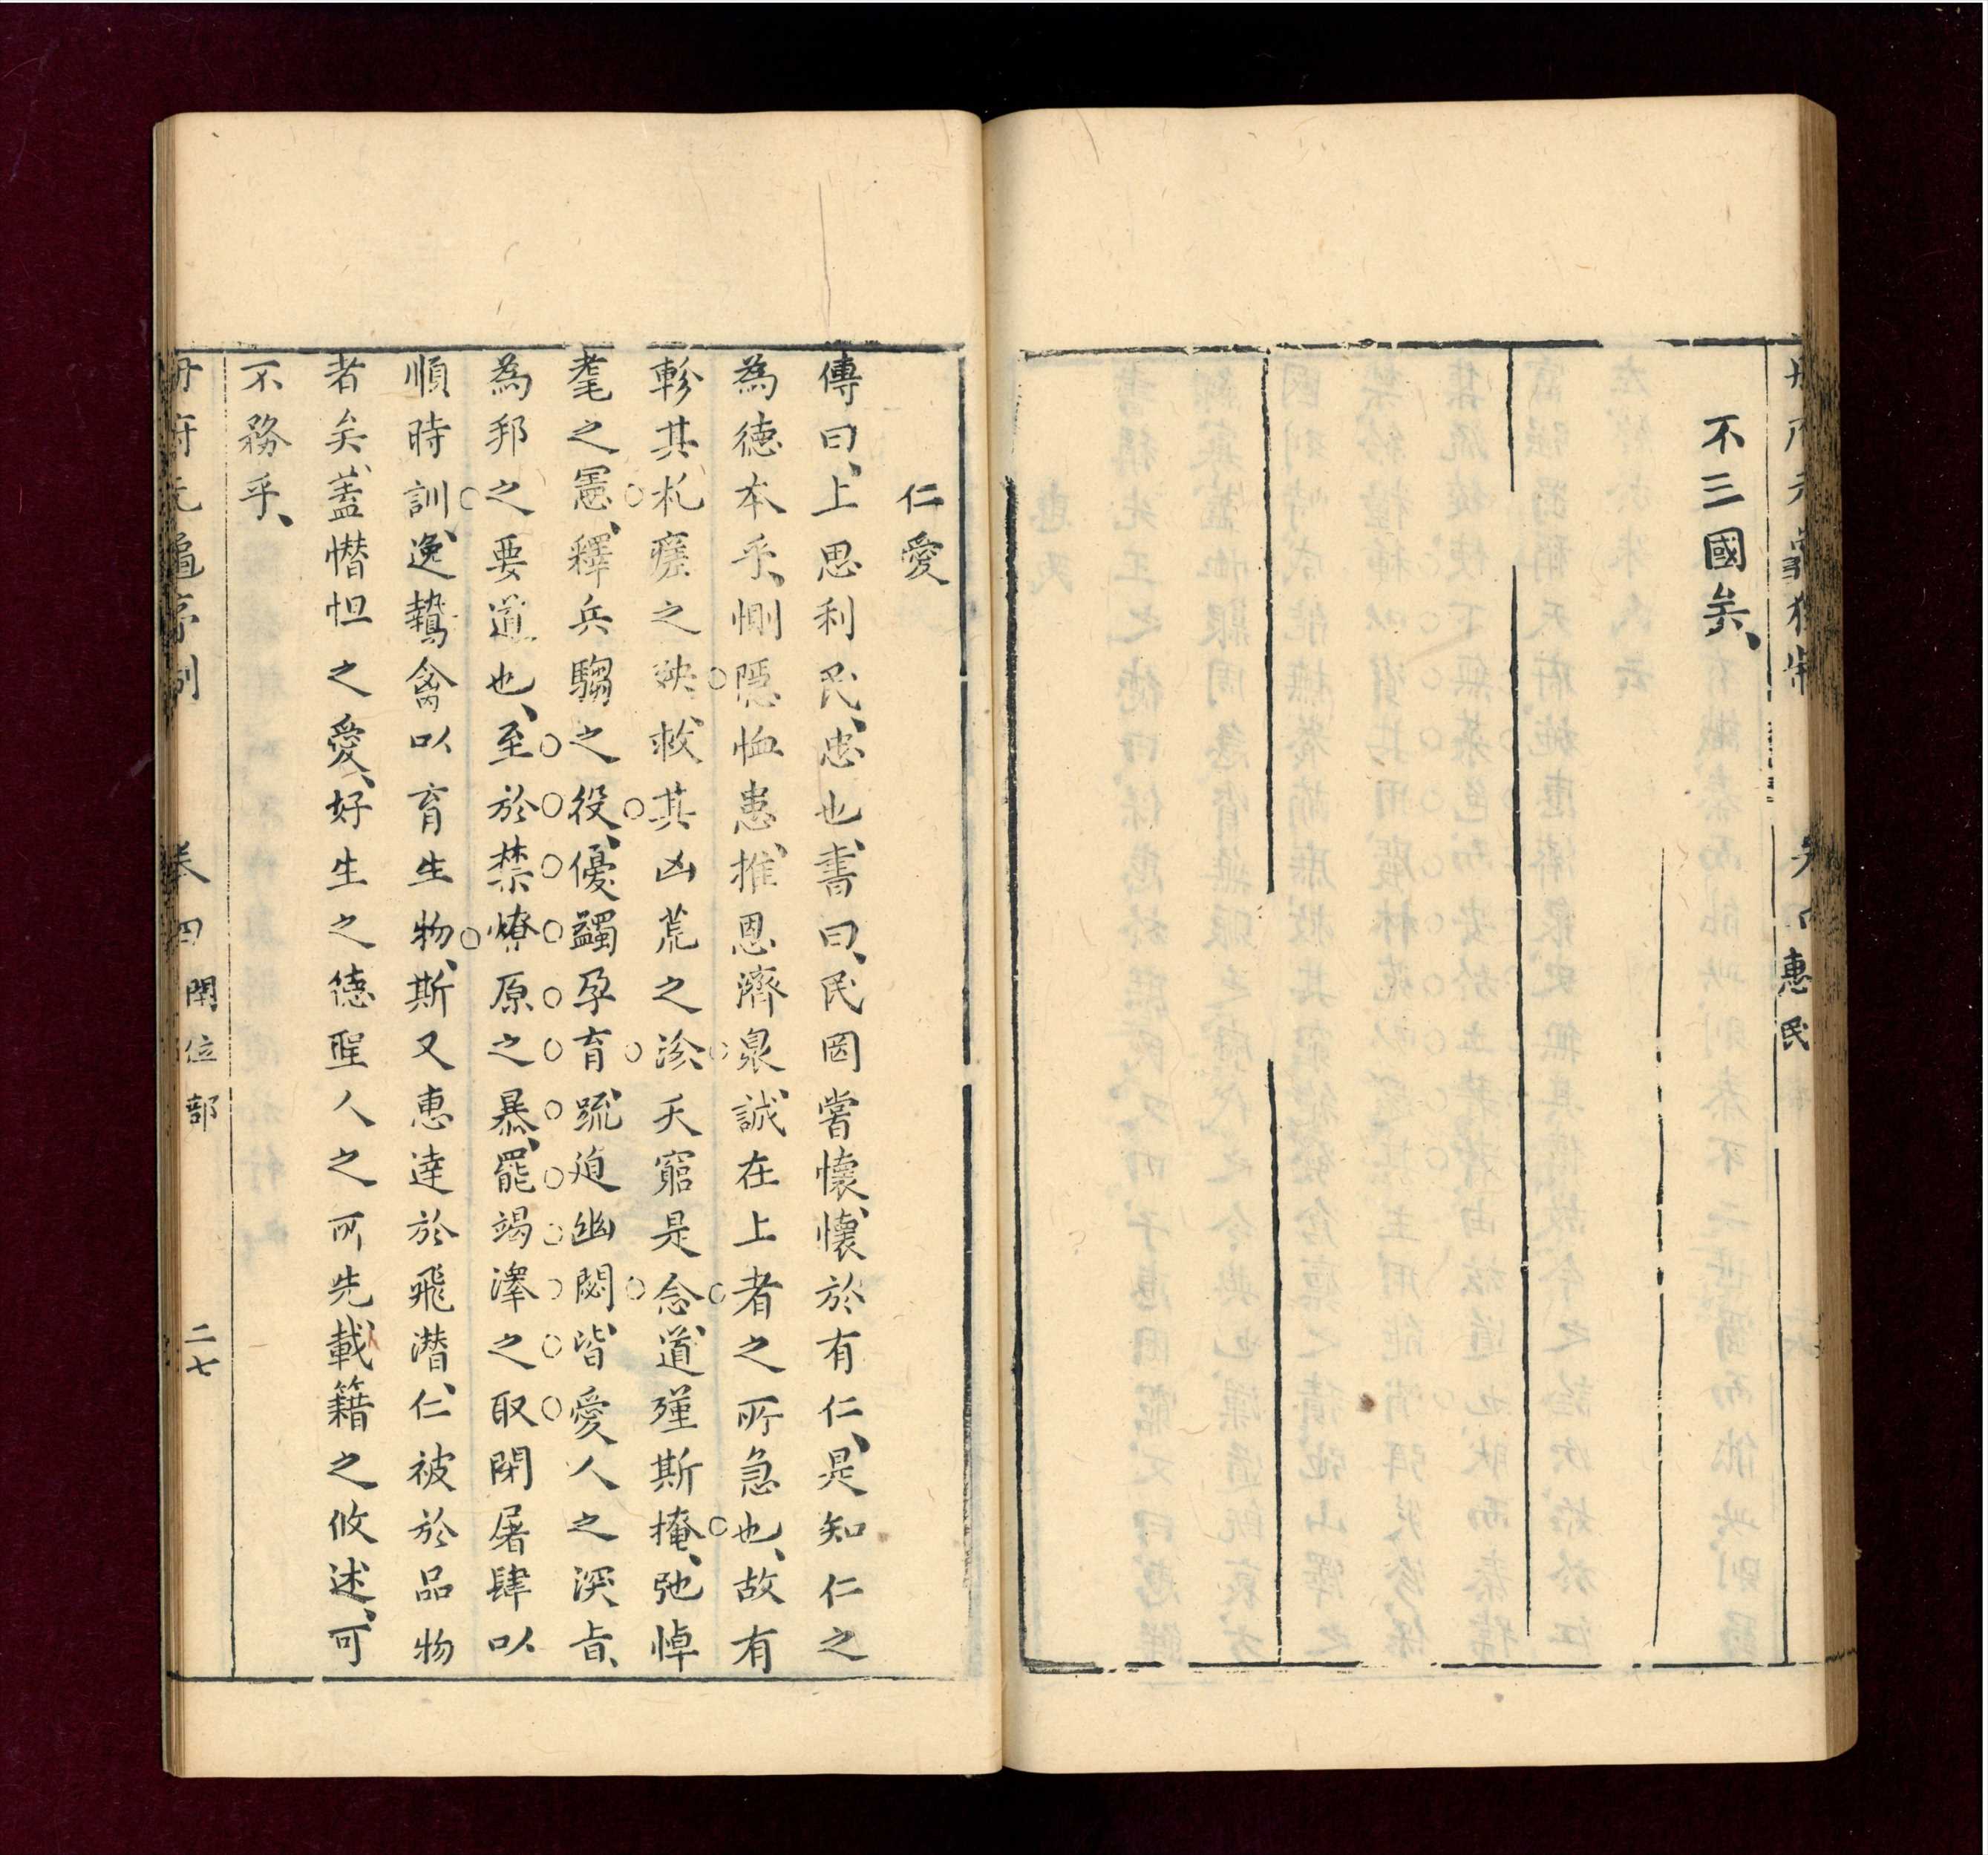 不三國矣、
惠民
仁愛
傳曰、上思利民、忠也、書曰、民罔嘗懷、懷於有仁、是知仁之
為德本乎、惻隱恤患、推恩濟衆、誠在上者之所急也、故有
軫其札瘥之殃、救其凶荒之沴、夭窮是念、道殣斯掩、弛悼
耄之罿、釋兵騶之役、優蠲孕育、疏迫幽閟、皆愛人之深旨、
為邦之要道也、至於禁燎原之暴、罷竭澤之取、閉屠肆以
順時訓、逸鷙禽以育生物、斯又惠達於飛潛、仁被於品物
者矣、蓋憯怛之愛、好生之德、聖人之所先、載籍之攸述、可
不務乎、
卷四 閏位部 二七